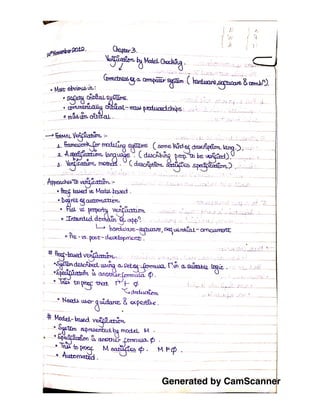 14th November 2012.
Chapter 3.
Verification by Model Checking.
Correctness of a computer system (hardware, software & combn).
• Most obvious in:-
• safety critical systems
• commercially critical - mass produced chips
• mission critical.
→ Formal Verification :-
1. framework for modeling systems (some kind of description lang.).
2. A specification language (describing prop. to be verified)
3. Verification method (description satisfies specification).
Approaches to verification :-
• Proof based vs Model based.
• Degree of automation
• Full vs property verification
• Intended domain of appn
↳ hardware-software, sequential-concurrent
• Pre-vs. post-development.
# Proof-based verification.
• System described using a set of formula Γ in a suitable logic.
• Specification is another formula ϕ.
• Tries to prove that Γ ⊢ ϕ
↳ deduction
• Needs user guidance & expertise.
# Model-based verification.
• System represented by model M.
• Specification is another formula ϕ.
• Tries to prove M satisfies ϕ. M ⊨ ϕ
• Automated.
Generated by CamScanner